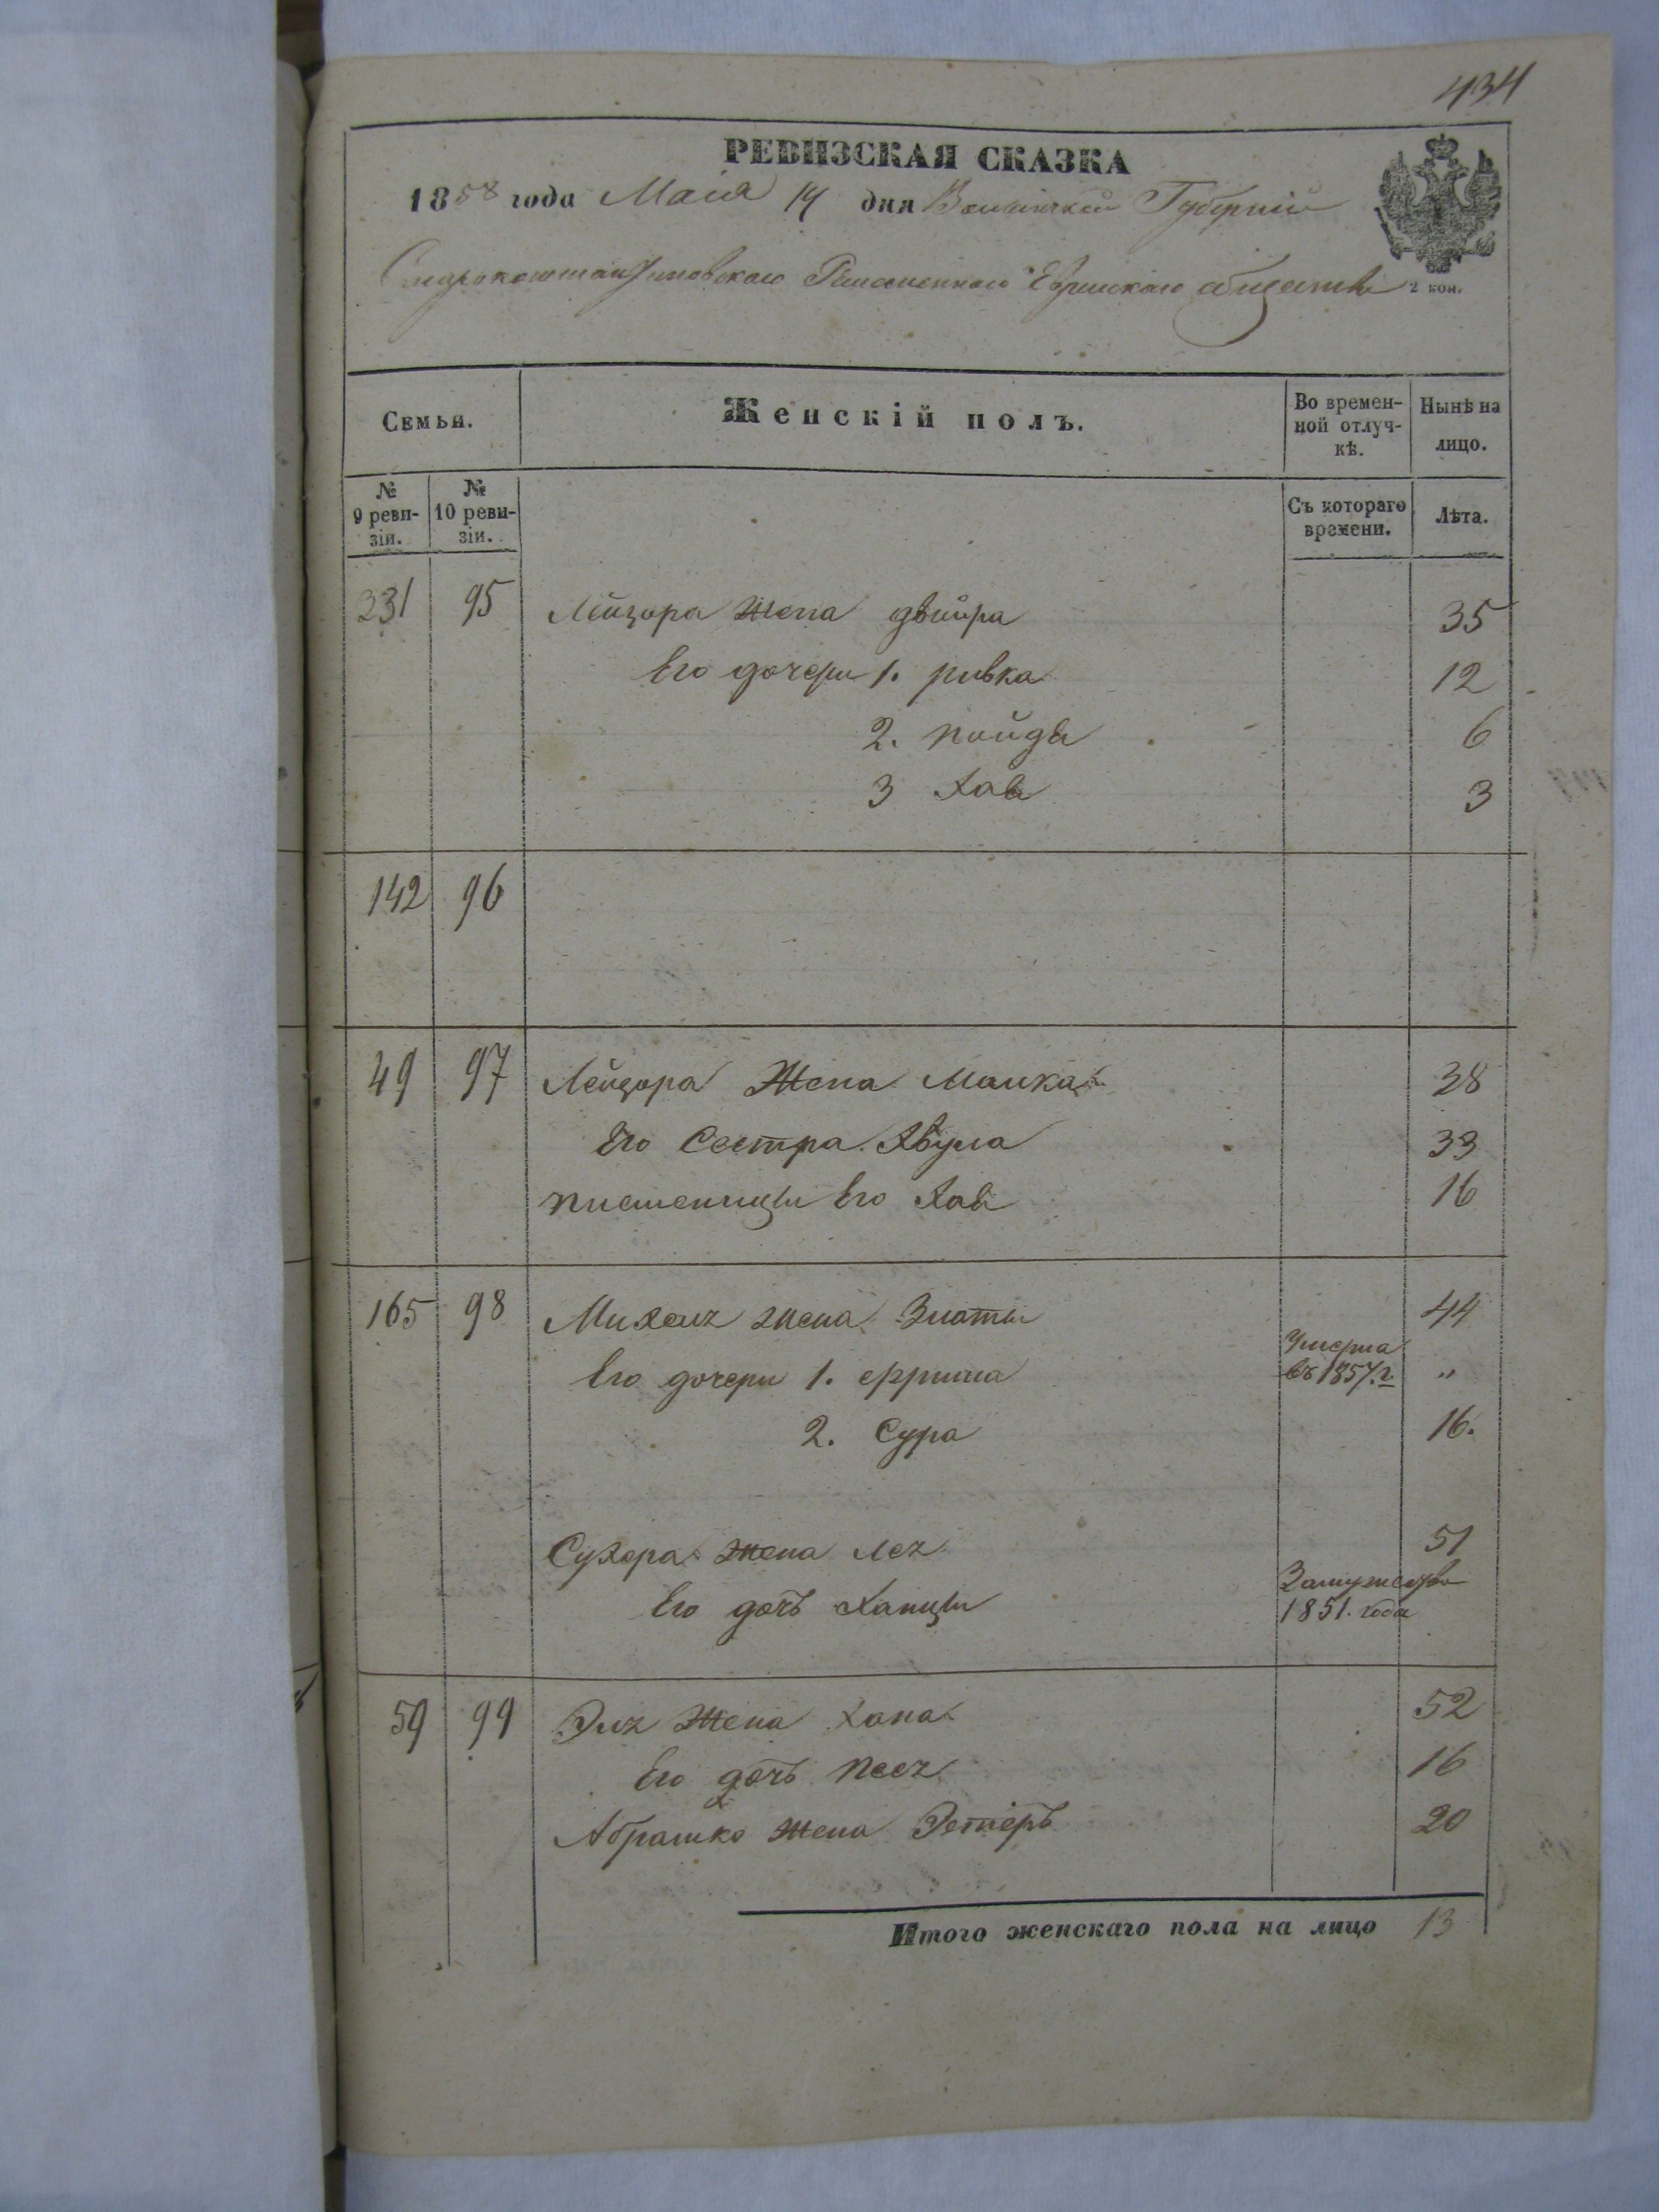 434
РЕВИЗСКАЯ СКАЗКА
1858 года Маія 14 дня Волынской Губерніи
Старокоштантиновского Ремесленного Еврейского общества
2 коп.
Семьи. Женскій полъ. Во времен- Нынѣ на
ной отлуч- лицо.
кѣ.
№ № Съ котораго Лѣта.
9 реви- 10 реви- времени.
зіи. зіи.
231 95 Лейзора жена двойра 35
Его дочери 1. ривка 12
2. пойда 6
3 Хава 3
142 96
49 97 Лейзора Жена Малка 38
Его Сестра Хвула 33
племенница Его Хава 16
165 98 Михеля жена Злота 44
Его дочери 1. ефрима Умерла въ 1857. г. "
2. Сура 16.
Сухера жена Лея 51
Его дочъ Ханца Замужества
1851. года
59 99 Эля Жена Хана 52
Его дочъ Песя 16
Абрашко жена Эстеръ 20
Итого женскаго пола на лицо 13